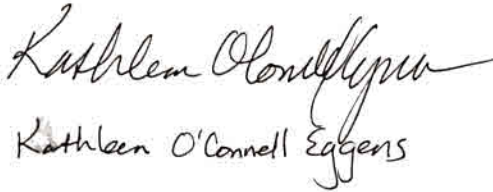 Kathleen O'Connell
Kathleen O'Connell Eggens